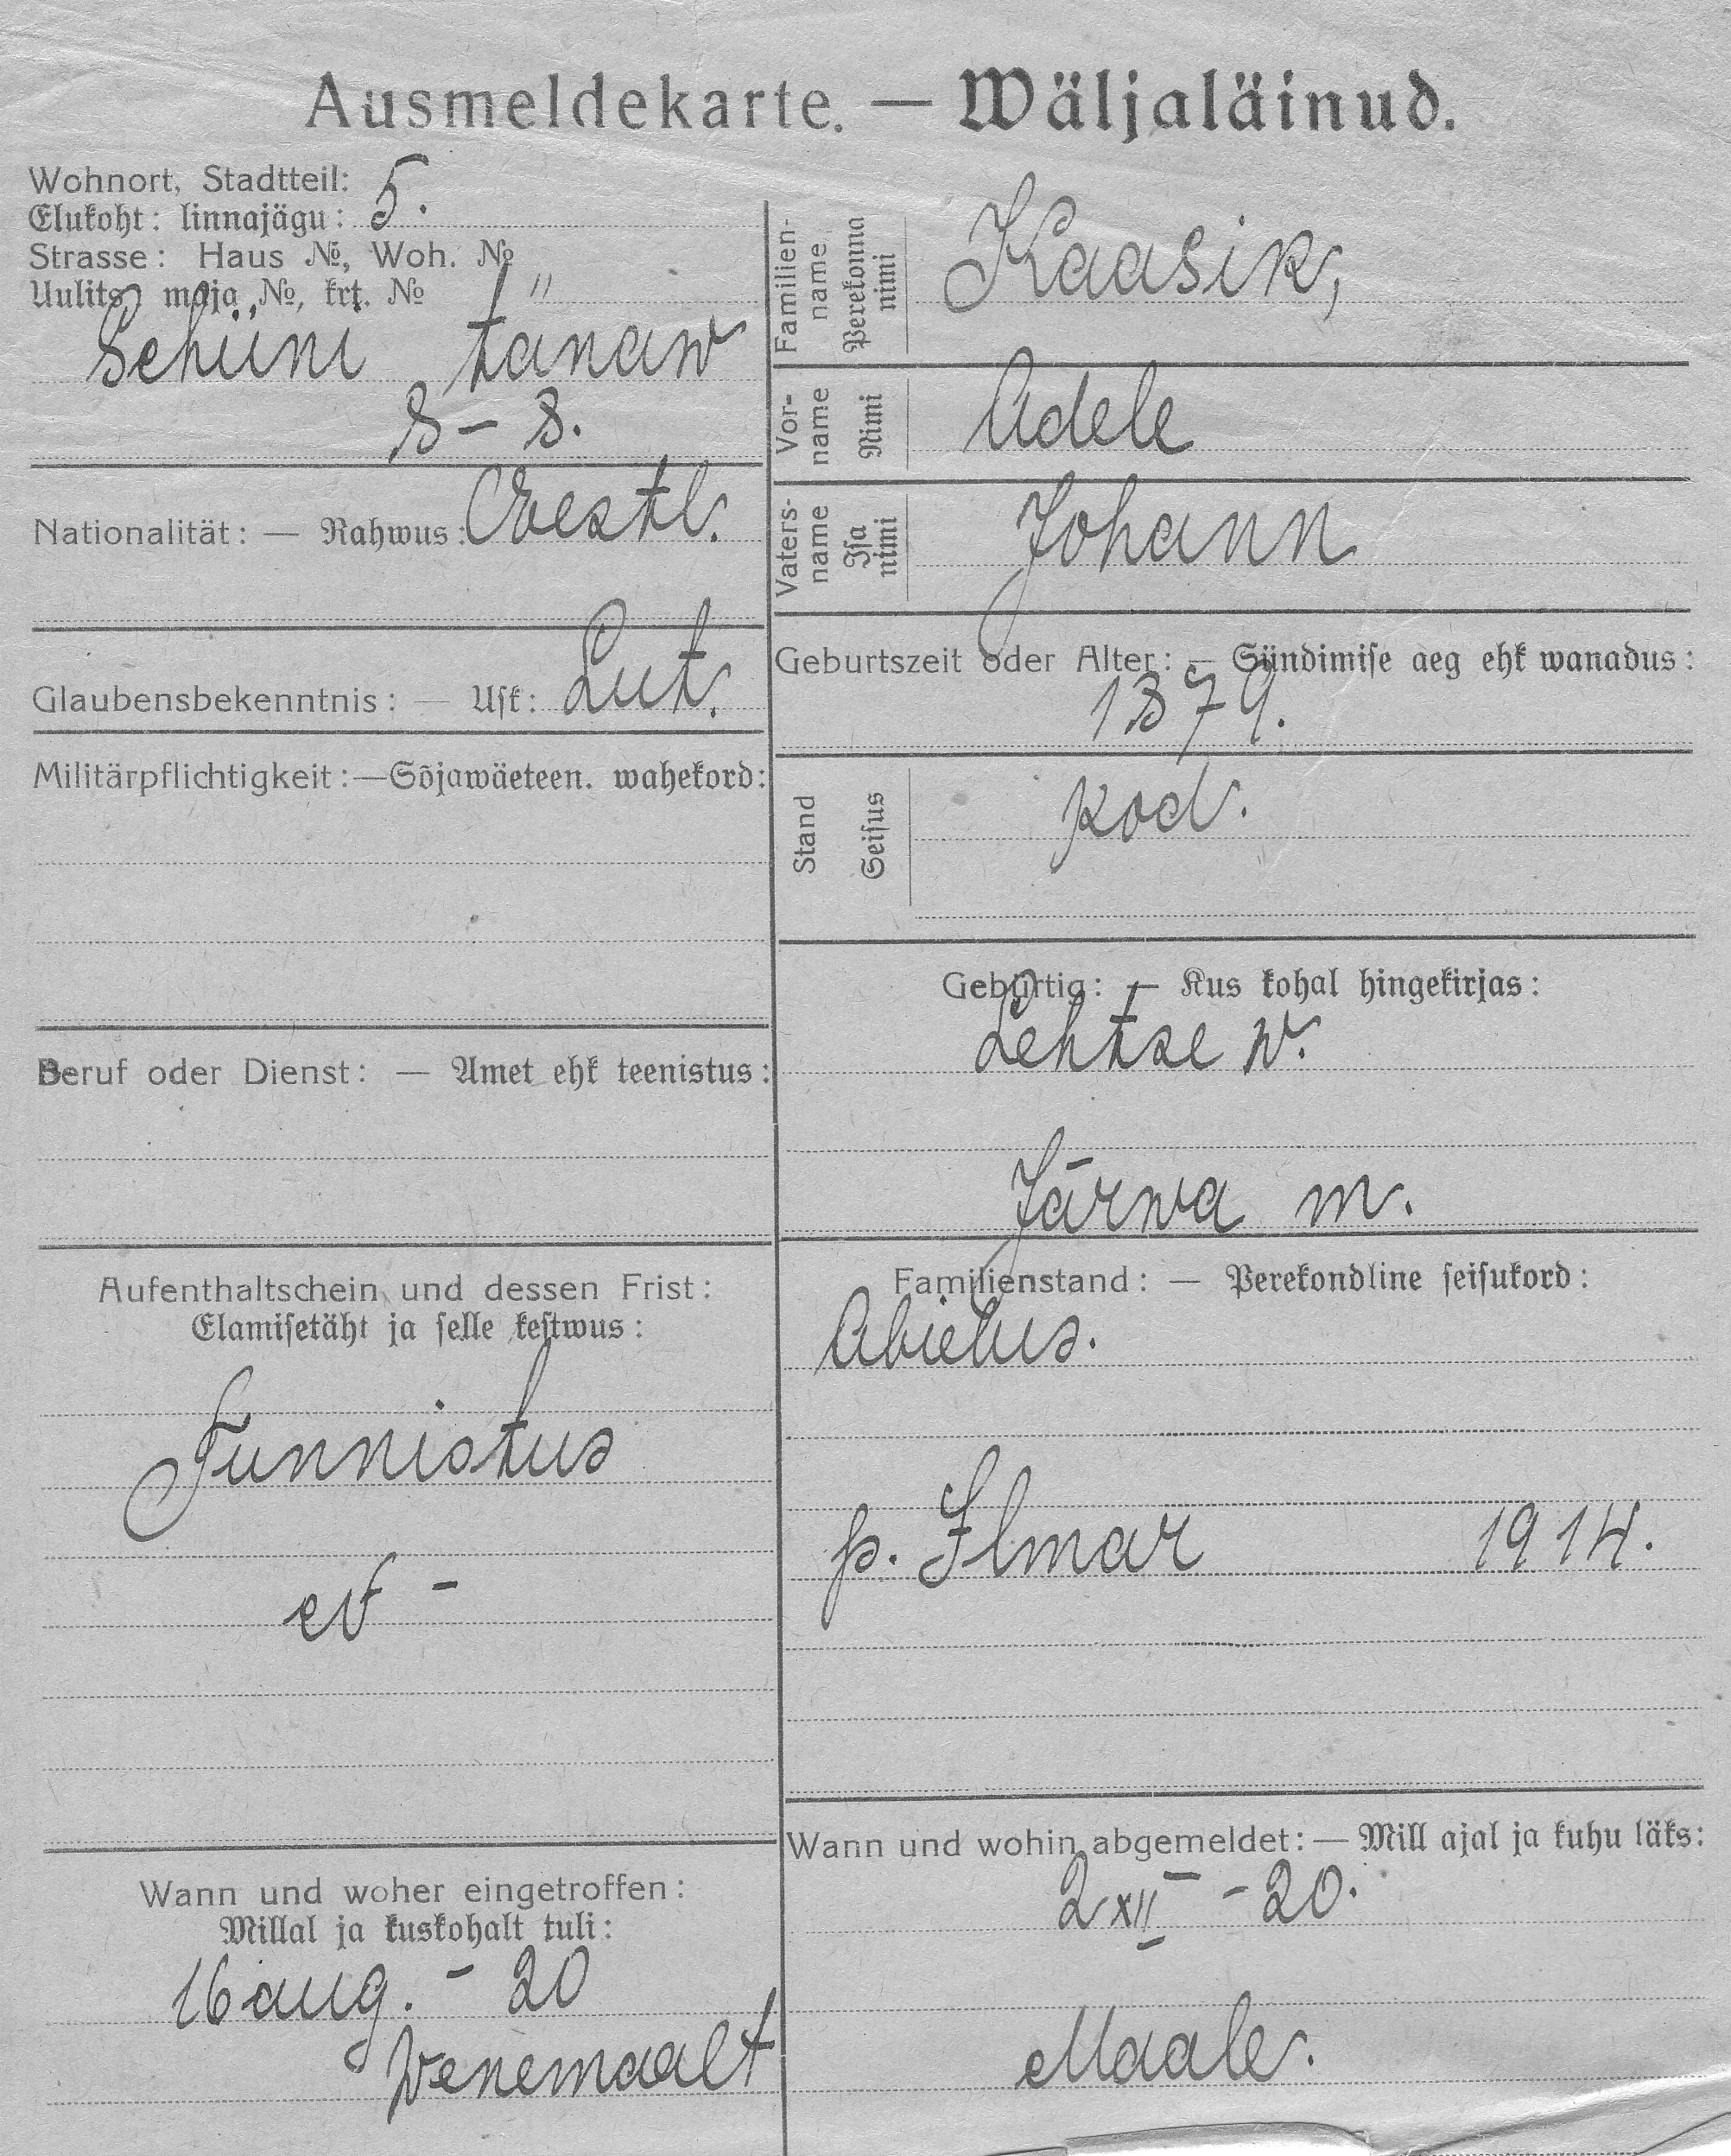 Ausmeldekarte. — Wäljaläinud.
Wohnort, Stadtteil:
Elukoht: linnajägu: 5.
Strasse: Haus №, Woh. №
Uulits, maja №, krt. № "
Schüüni tänaw
8 – 8.
Nationalität: — Rahwus: Eestl.
Glaubensbekenntnis: — Usk: Lut.
Militärpflichtigkeit: — Sõjawäeteen. wahekord:
Beruf oder Dienst: — Amet ehk teenistus:
Aufenthaltschein und dessen Frist:
Elamisetäht ja selle kestwus:
Tunnistus
Wann und woher eingetroffen:
Millal ja kuskohalt tuli:
16 aug. – 20
Wenemaalt
Familien-
name
Perekonna
nimi
Kaasik,
Vor-
name
Nimi
Adele
Vaters-
name
Isa
nimi
Johann
Geburtszeit oder Alter: — Sündimise aeg ehk wanadus:
1879.
Stand
Seisus
kod.
Gebürtig: — Kus kohal hingekirjas:
Lehtse w.
Järwa m.
Familienstand: — Perekondline seisukord:
Abielus.
p. Ilmar 1914.
Wann und wohin abgemeldet: — Mill ajal ja kuhu läks:
2 XII – 20.
Maale.